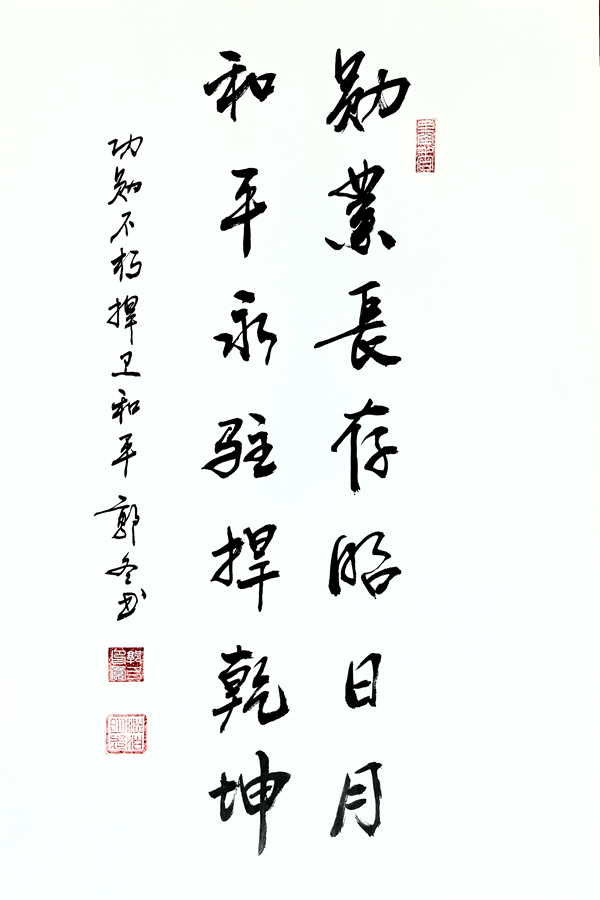 勋業長存昭日月
和平永驻捍乾坤
功勋不朽捍卫和平 郭冬书